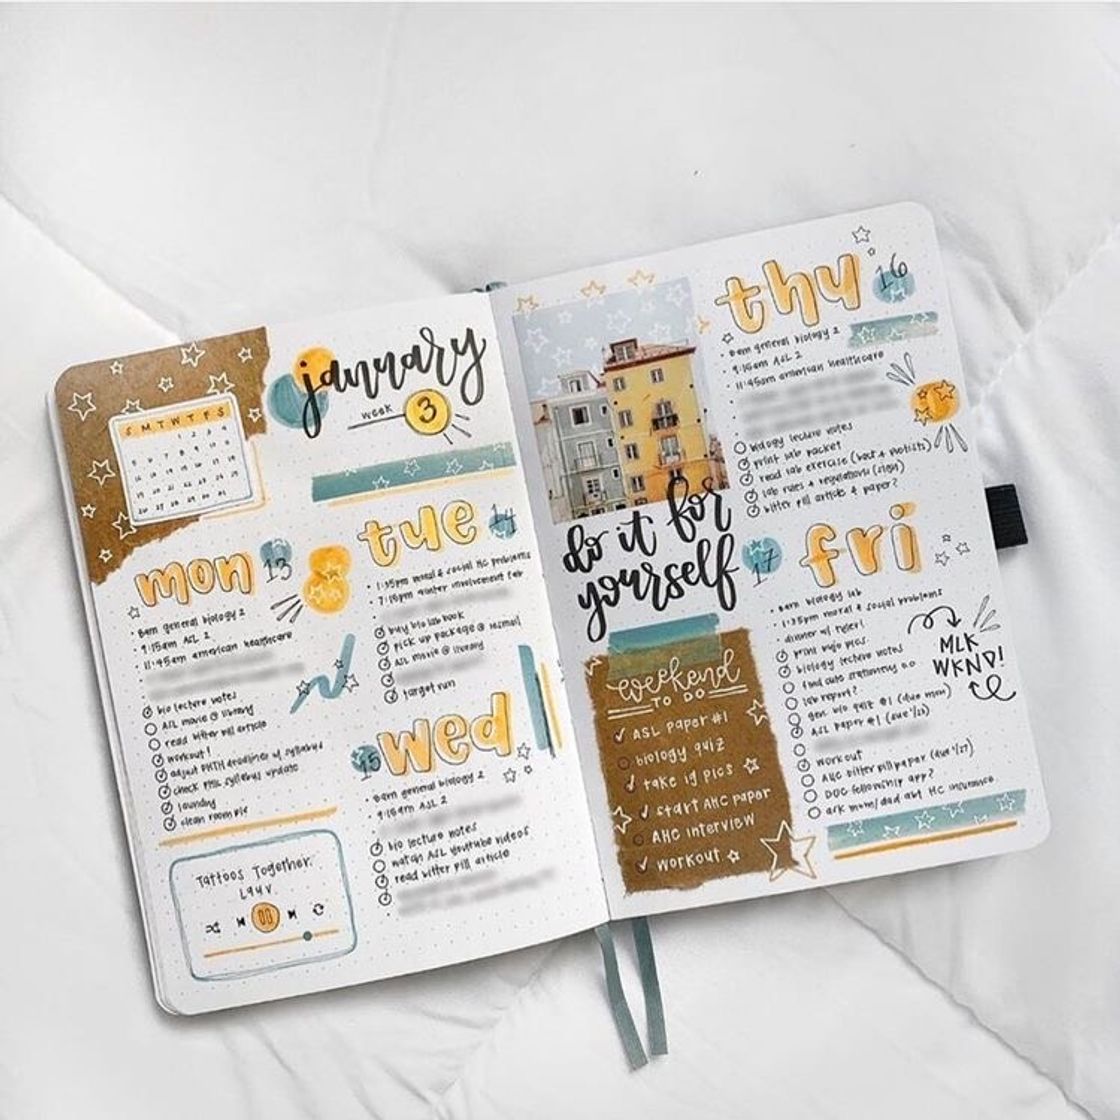 january
week 3
S M T W T F S
1 2 3 4
5 6 7 8 9 10 11
12 13 14 15 16 17 18
19 20 21 22 23 24 25
26 27 28 29 30 31
mon 13
8am general biology 2
9:15am ASL 2
11:45am american healthcare
bio lecture notes
ASL movie @ library
read bitter pill article
workout!
adjust PHTH deadlines w/ syllabus
check PHIL syllabus update
laundry
clean room pls
Tattoos Together.
Lauv.
tue 14
1:35pm moral & social HC problems
7:15pm winter involvement fair
buy bio lab book
pick up package @ mcmail
ASL movie @ library
target run
wed 15
8am general biology 2
9:15am ASL 2
bio lecture notes
watch ASL youtube videos
read bitter pill article
do it for
yourself
weekend
TO DO
ASL paper #1
biology quiz
take ig pics
start AHC paper
AHC interview
workout
thu 16
8am general biology 2
9:15am ASL 2
11:45am american healthcare
biology lecture notes
print lab packet
read lab exercise (bact & protists)
lab rules & regulations (sign)
bitter pill article & paper?
fri 17
8am biology lab
1:35pm moral & social problems
dinner w/ tyler!
print mojo pics.
biology lecture notes
find cute stationery o.o
lab report?
gen. bio quiz #1 (due mon)
ASL paper #1 (due 1/23)
workout
AHC bitter pill paper (due 1/27)
DOC fellowship app?
ask mom/dad abt HC insurance
MLK
WKND!